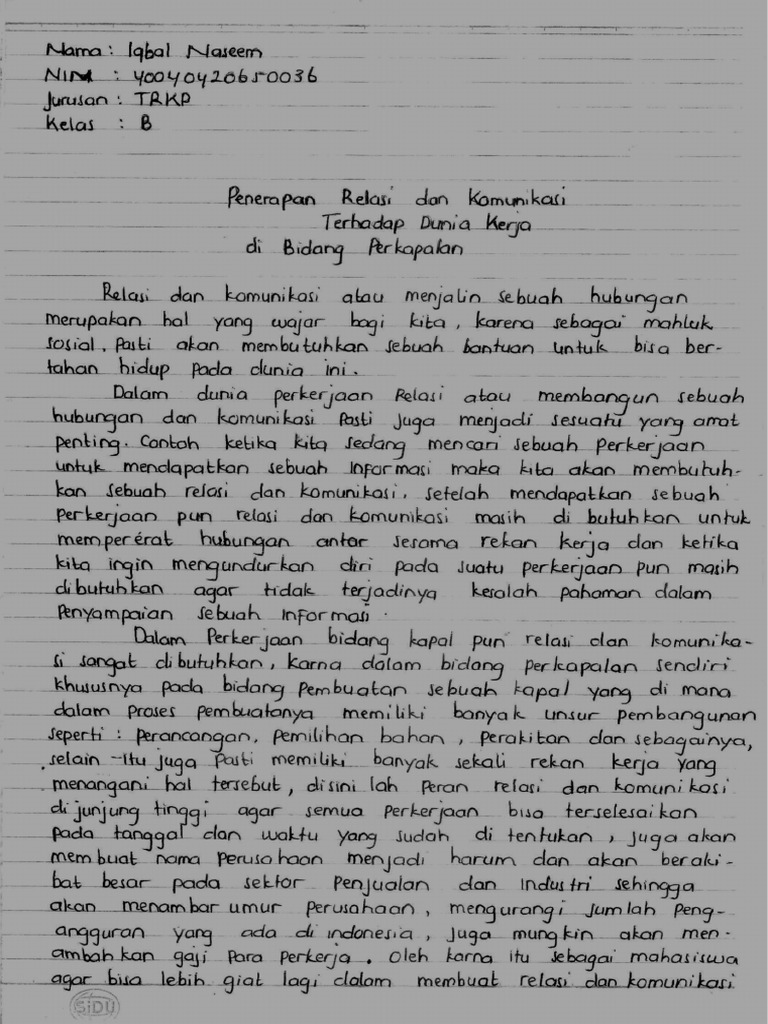 Nama : Iqbal Naseem
NIM : 40040420650036
Jurusan : TRKP
Kelas : B
Penerapan Relasi dan Komunikasi
Terhadap Dunia Kerja
di Bidang Perkapalan
Relasi dan komunikasi atau menjalin sebuah hubungan
merupakan hal yang wajar bagi kita, karena sebagai mahluk
sosial. Pasti akan membutuhkan sebuah bantuan untuk bisa ber-
tahan hidup pada dunia ini.
Dalam dunia perkerjaan Relasi atau membangun sebuah
hubungan dan komunikasi Pasti juga menjadi sesuatu yang amat
penting. Contoh ketika kita sedang mencari sebuah Perkerjaan
untuk mendapatkan sebuah Informasi maka kita akan membutuh-
kan sebuah relasi dan komunikasi. setelah mendapatkan sebuah
Perkerjaan pun relasi dan komunikasi masih di butuhkan untuk
mempererat hubungan antar sesama rekan kerja dan ketika
kita ingin mengundurkan diri pada suatu perkerjaan pun masih
dibutuhkan agar tidak terjadinya kesalah pahaman dalam
Penyampaian sebuah Informasi.
Dalam Perkerjaan bidang kapal pun relasi dan komunika-
si sangat dibutuhkan, karna dalam bidang perkapalan sendiri
khususnya pada bidang Pembuatan sebuah kapal yang di mana
dalam proses pembuatanya memiliki banyak unsur pembangunan
seperti : perancangan, pemilihan bahan, perakitan dan sebagainya,
selain -itu juga Pasti memiliki banyak sekali rekan kerja yang
menangani hal tersebut, disini lah peran relasi dan komunikasi
dijunjung tinggi agar semua perkerjaan bisa terselesaikan
pada tanggal dan waktu yang sudah di tentukan, juga akan
membuat nama Perusahaan menjadi harum dan akan beraki-
bat besar pada sektor Penjualan dan Industri sehingga
akan menambar umur perusahaan, mengurangi jumlah Peng-
angguran yang ada di indonesia, juga mungkin akan men-
ambahkan gaji Para Perkerja. Oleh karna itu sebagai mahasiswa
agar bisa lebih giat lagi dalam membuat relasi dan komunikasi
SiDU